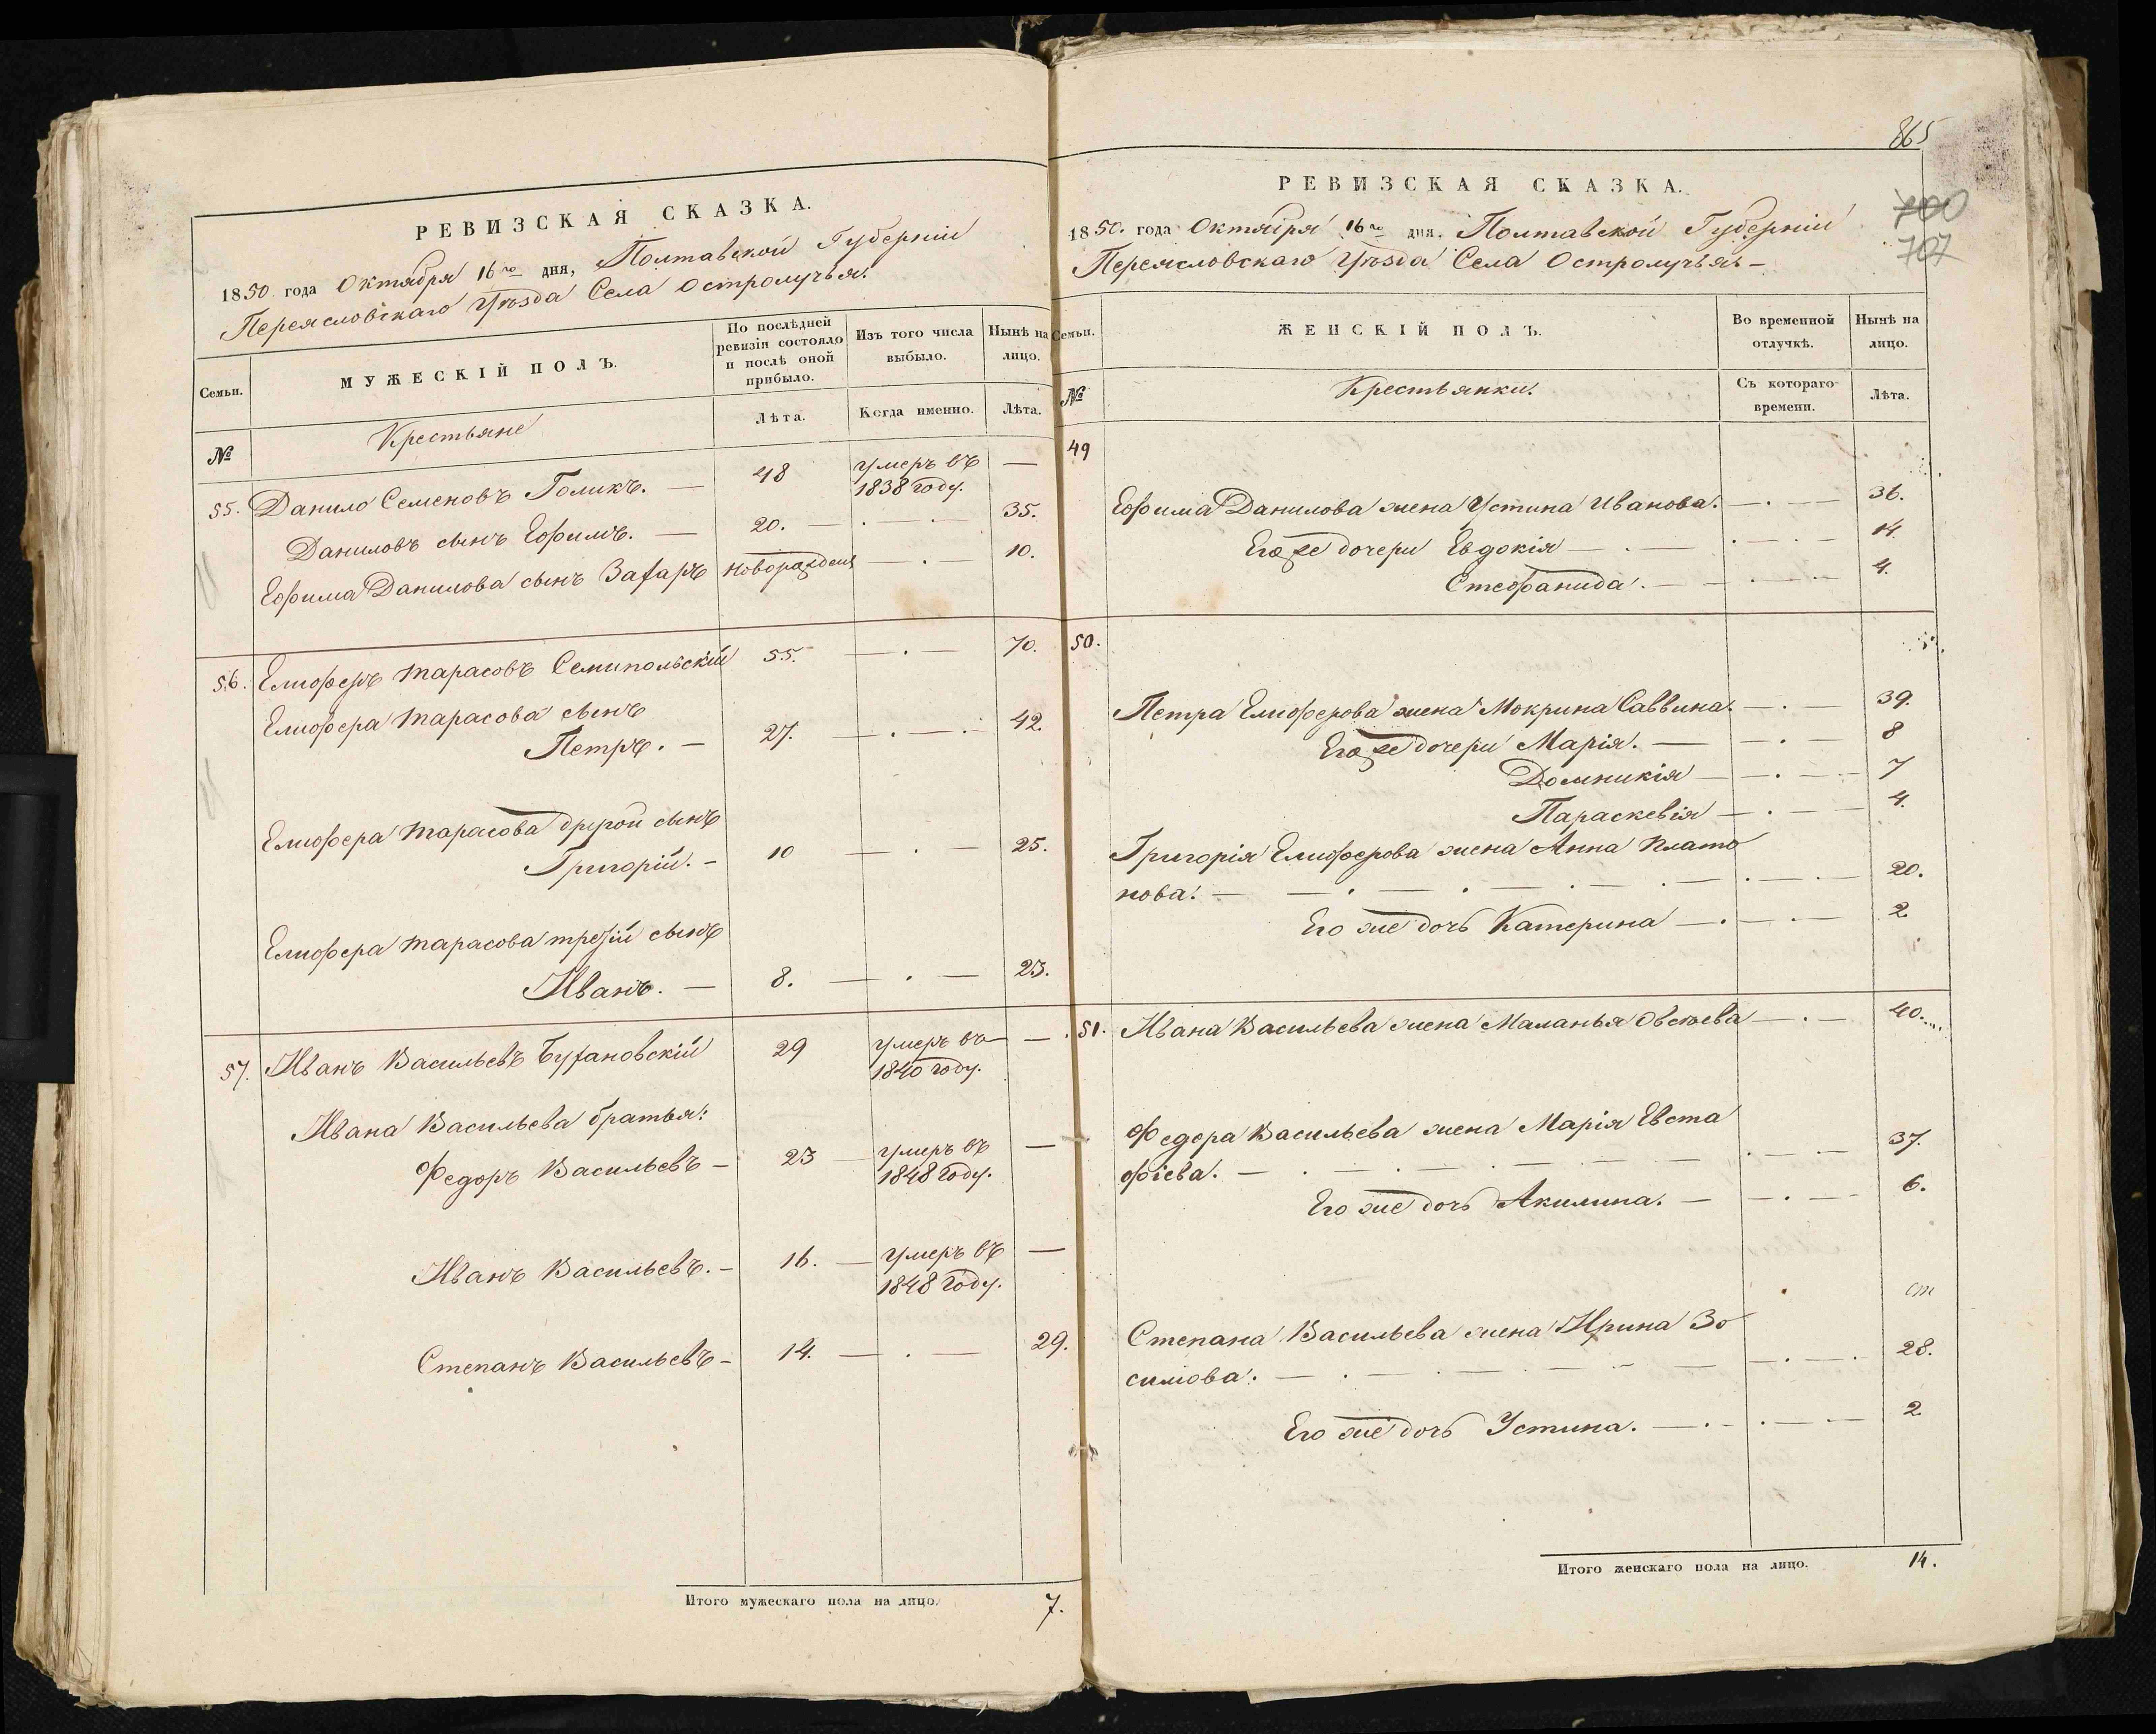 РЕВИЗСКАЯ СКАЗКА.
1850 года Октября 16го дня, Полтавской Губерніи
Переясловскаго Уѣзда Села Остролучья.
Семьи.
МУЖЕСКІЙ ПОЛЪ.
По послѣдней ревизіи состояло и послѣ оной прибыло.
Изъ того числа выбыло.
Нынѣ на лицо.
№
Крестьяне
Лѣта.
Когда именно.
Лѣта.
55. Данило Семеновъ Голикъ. — 48 умеръ въ —
1838 году.
Даниловъ сынъ Ефимъ. — 20. 35.
Ефима Данилова сынъ Захаръ новорожден — . — 10.
56. Елиферъ Тарасовъ Семипольскій 55. — . — 70.
Елифера Тарасова сынъ
Петръ. — 27. — . — . 42.
Елифера Тарасова другой сынъ
Григорій. — 10 — . — 25.
Елифера Тарасова третій сынъ
Иванъ. — 8. — . — 23.
57. Иванъ Васильевъ Бухановскій 29 умеръ въ —
1840 году.
Ивана Васильева братья:
Федоръ Васильевъ — 23 — умеръ въ —
1848 году.
Иванъ Васильевъ. — 16. — умеръ въ —
1848 году.
Степанъ Васильевъ — 14. — . — 29.
Итого мужескаго пола на лицо. 7.
865
РЕВИЗСКАЯ СКАЗКА.
700
707
1850. года Октября 16го дня. Полтавской Губерніи
Переясловскаго Уѣзда Села Остролучья. —
Семьи.
ЖЕНСКІЙ ПОЛЪ.
Во временной отлучкѣ.
Нынѣ на лицо.
№
Крестьянки.
Съ котораго времени.
Лѣта.
49
Ефима Данилова жена Устина Иванова. — . — 36.
Его же дочери Евдокія — . — . — . — 14.
Стефанида. — — . — 4.
50.
Петра Елиферова жена Мокрина Саввина. — . — 39.
Его же дочери Марія. — — . — 8
Домникія — — . — 7
Параскевія — . — 4.
Григорія Елиферова жена Анна Плато
нова. — — . — . — . — . — . — . — 20.
Его же дочь Катерина — . — . — 2
51. Ивана Васильева жена Маланья Овсѣева — . — 40.
Федора Васильева жена Марія Евста
фіева. — . — . — . — . — . — 37.
Его же дочь Акилина. — — . — 6.
Степана Васильева жена Ирина Зо
симова. — . — . — — . — . 28.
Его же дочь Устина. — . — . — . — 2
Итого женскаго пола на лицо. 14.